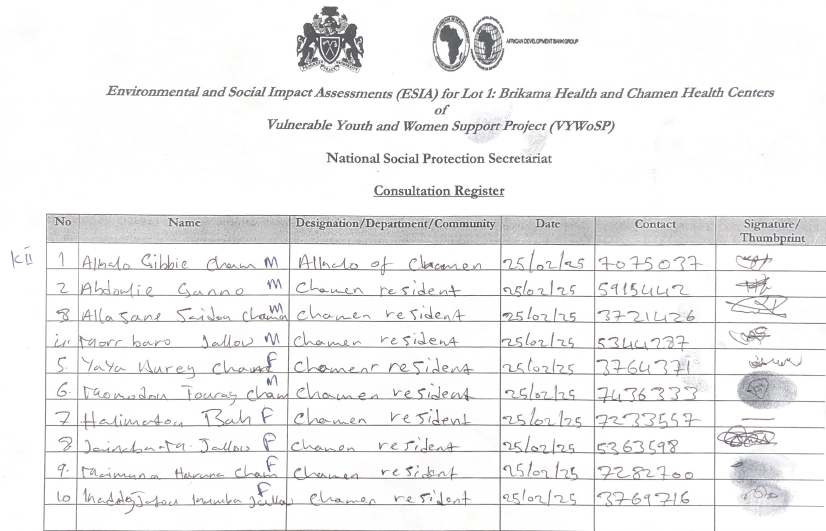 AFRICAN DEVELOPMENT BANK GROUP
Environmental and Social Impact Assessments (ESIA) for Lot 1: Brikama Health and Chamen Health Centers
of
Vulnerable Youth and Women Support Project (VYWoSP)
National Social Protection Secretariat
Consultation Register
No Name Designation/Department/Community Date Contact Signature/Thumbprint
KII 1 Alhalo Gibbie Cham M Alhalo of Chamen 25/02/25 7075037
2 Abdoulie Ganno M Chamen resident 25/02/25 5915442
8 Allasane Saidou Cham M Chamen resident 25/02/25 3721426
baro Jallow M Chamen resident 25/02/25
5. YaYa Kurey Cham F Chamen resident 25/02/25 3764371
6. Touray Cham M Chamen resident 25/02/25 7436333
7 Halimatou Bah F Chamen resident 25/02/25 7233557
8 Jallow F Chamen resident 25/02/25 5363598
9. Maimuna Haruna Cham F Chamen resident 25/02/25 7282700
10 F Chamen resident 25/02/25 3769716